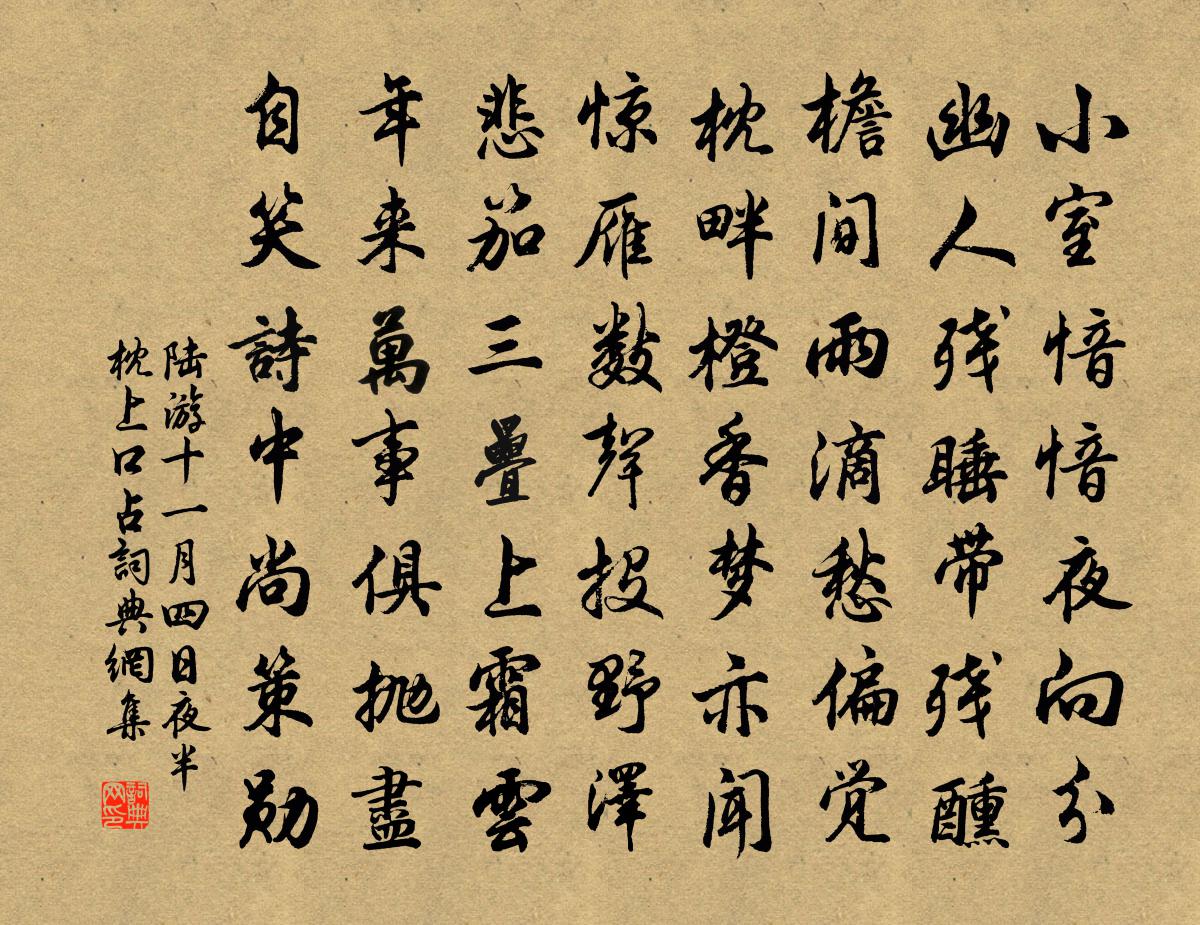 小室愔愔夜向分
幽人残睡带残醺
檐间雨滴愁偏觉
枕畔橙香梦亦闻
惊雁数聲投野澤
悲笳三疊上霜雲
年来萬事俱抛盡
自笑詩中尚策勋
陆游十一月四日夜半
枕上口占詞典網集
詞典
网印